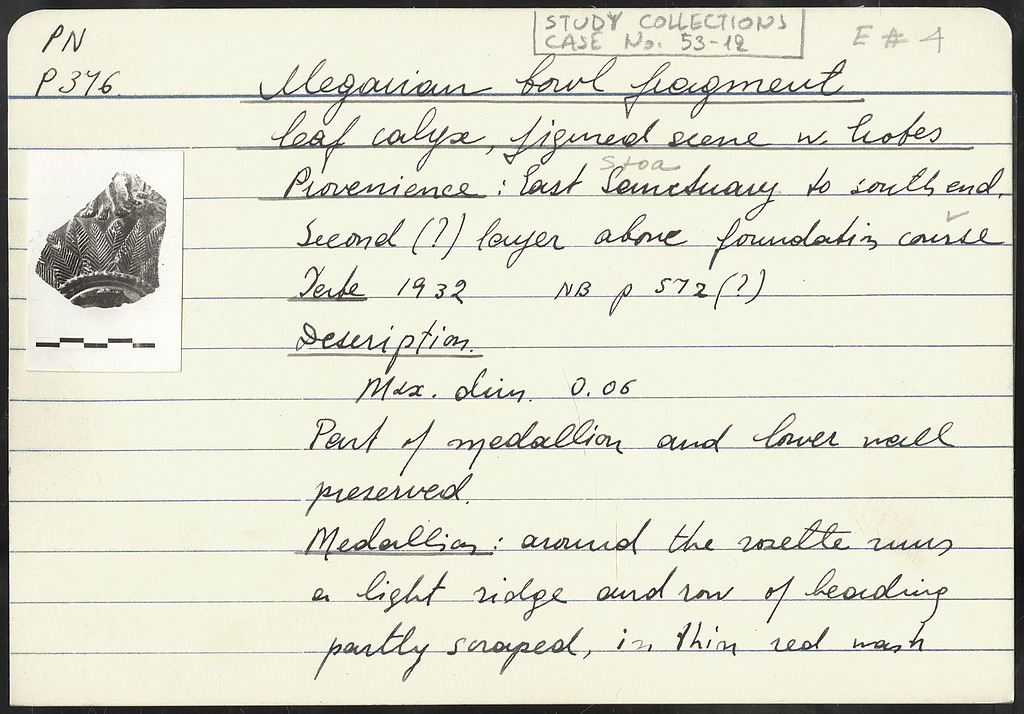 PN
P 376.
STUDY COLLECTIONS
CASE No. 53-12
E # 4
Megarian bowl fragment
leaf calyx, figured scene w. Erotes
Stoa
Provenience : East Sanctuary to south end.
Second (?) layer above foundation course
Date 1932 NB p 572 (?)
Description.
Max. dim. 0.06
Part of medallion and lower wall
preserved.
Medallion : around the rosette runs
a light ridge and row of beading
partly scraped, in thin red wash